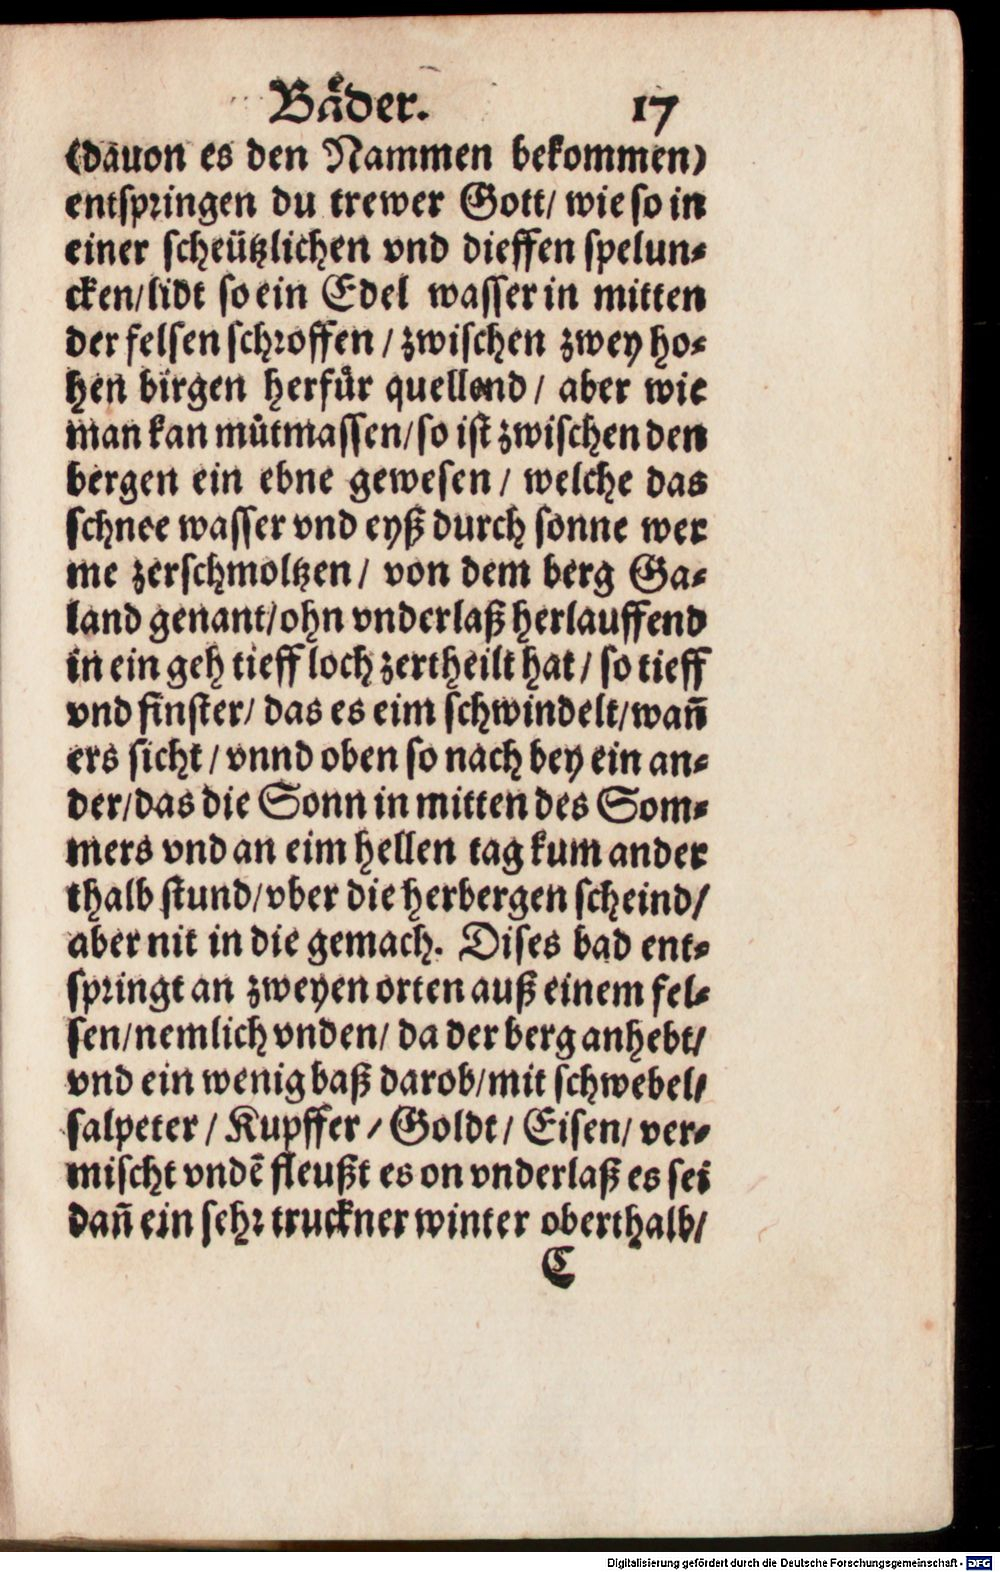 Baͤder. 17
(dauon es den Nammen bekommen)
entspringen du trewer Gott/ wie so in
einer scheützlichen vnd dieffen spelun⸗
cken/lidt so ein Edel wasser in mitten
der felsen schroffen / zwischen zwey ho⸗
hen birgen herfuͤr quellend / aber wie
man kan muͤtmassen/so ist zwischen den
bergen ein ebne gewesen / welche das
schnee wasser vnd eyß durch sonne wer
me zerschmoltzen / von dem berg Ga⸗
land genant/ohn vnderlaß herlauffend
in ein geh tieff loch zertheilt hat / so tieff
vnd finster/ das es eim schwindelt/wañ
ers sicht / vnnd oben so nach bey ein an⸗
der/das die Sonn in mitten des Som⸗
mers vnd an eim hellen tag kum ander
thalb stund/vber die herbergen scheind/
aber nit in die gemach. Dises bad ent⸗
springt an zweyen orten auß einem fel⸗
sen/nemlich vnden/ da der berg anhebt/
vnd ein wenig baß darob/mit schwebel/
salpeter / Kupffer / Goldt / Eisen/ ver⸗
mischt vndẽ fleußt es on vnderlaß es sei
dañ ein sehr truckner winter oberthalb/
C
Digitalisierung gefördert durch die Deutsche Forschungsgemeinschaft - DFG